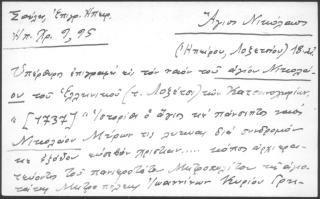 Σούλης, Ἐπιγρ. Ἠπειρ.
Ἠπ. Χρ. 9, 95
Ἅγιος Νικόλαος
(Ἠπείρου, Λοζέτσιου) 18 αἰ.
Ὑπέρθυρη ἐπιγραφὴ εἰς τὸν ναὸν τοῦ ἁγίου Νικολά-
ου τοῦ Ἑλληνικοῦ (τ. Λοζέτσι) τῶν Κατσανοχωρίων,
"[1737] "Ἱστορίθι ὁ ἅγιος κὲ πάνσεπτος ναός
Νικολάου Μύρων τις Λυκίας διὰ συνδρομῶν
κὲ ἐξόδου τῶν Χριστιαν..... κόπος ἀρχιερα-
τεύοντος τοῦ πανιεροτάτου Μητροπολίτου τῆς ἁγιο-
τάτης Μητροπόλεως Ἰωαννίνων Κυρίου Γρη-